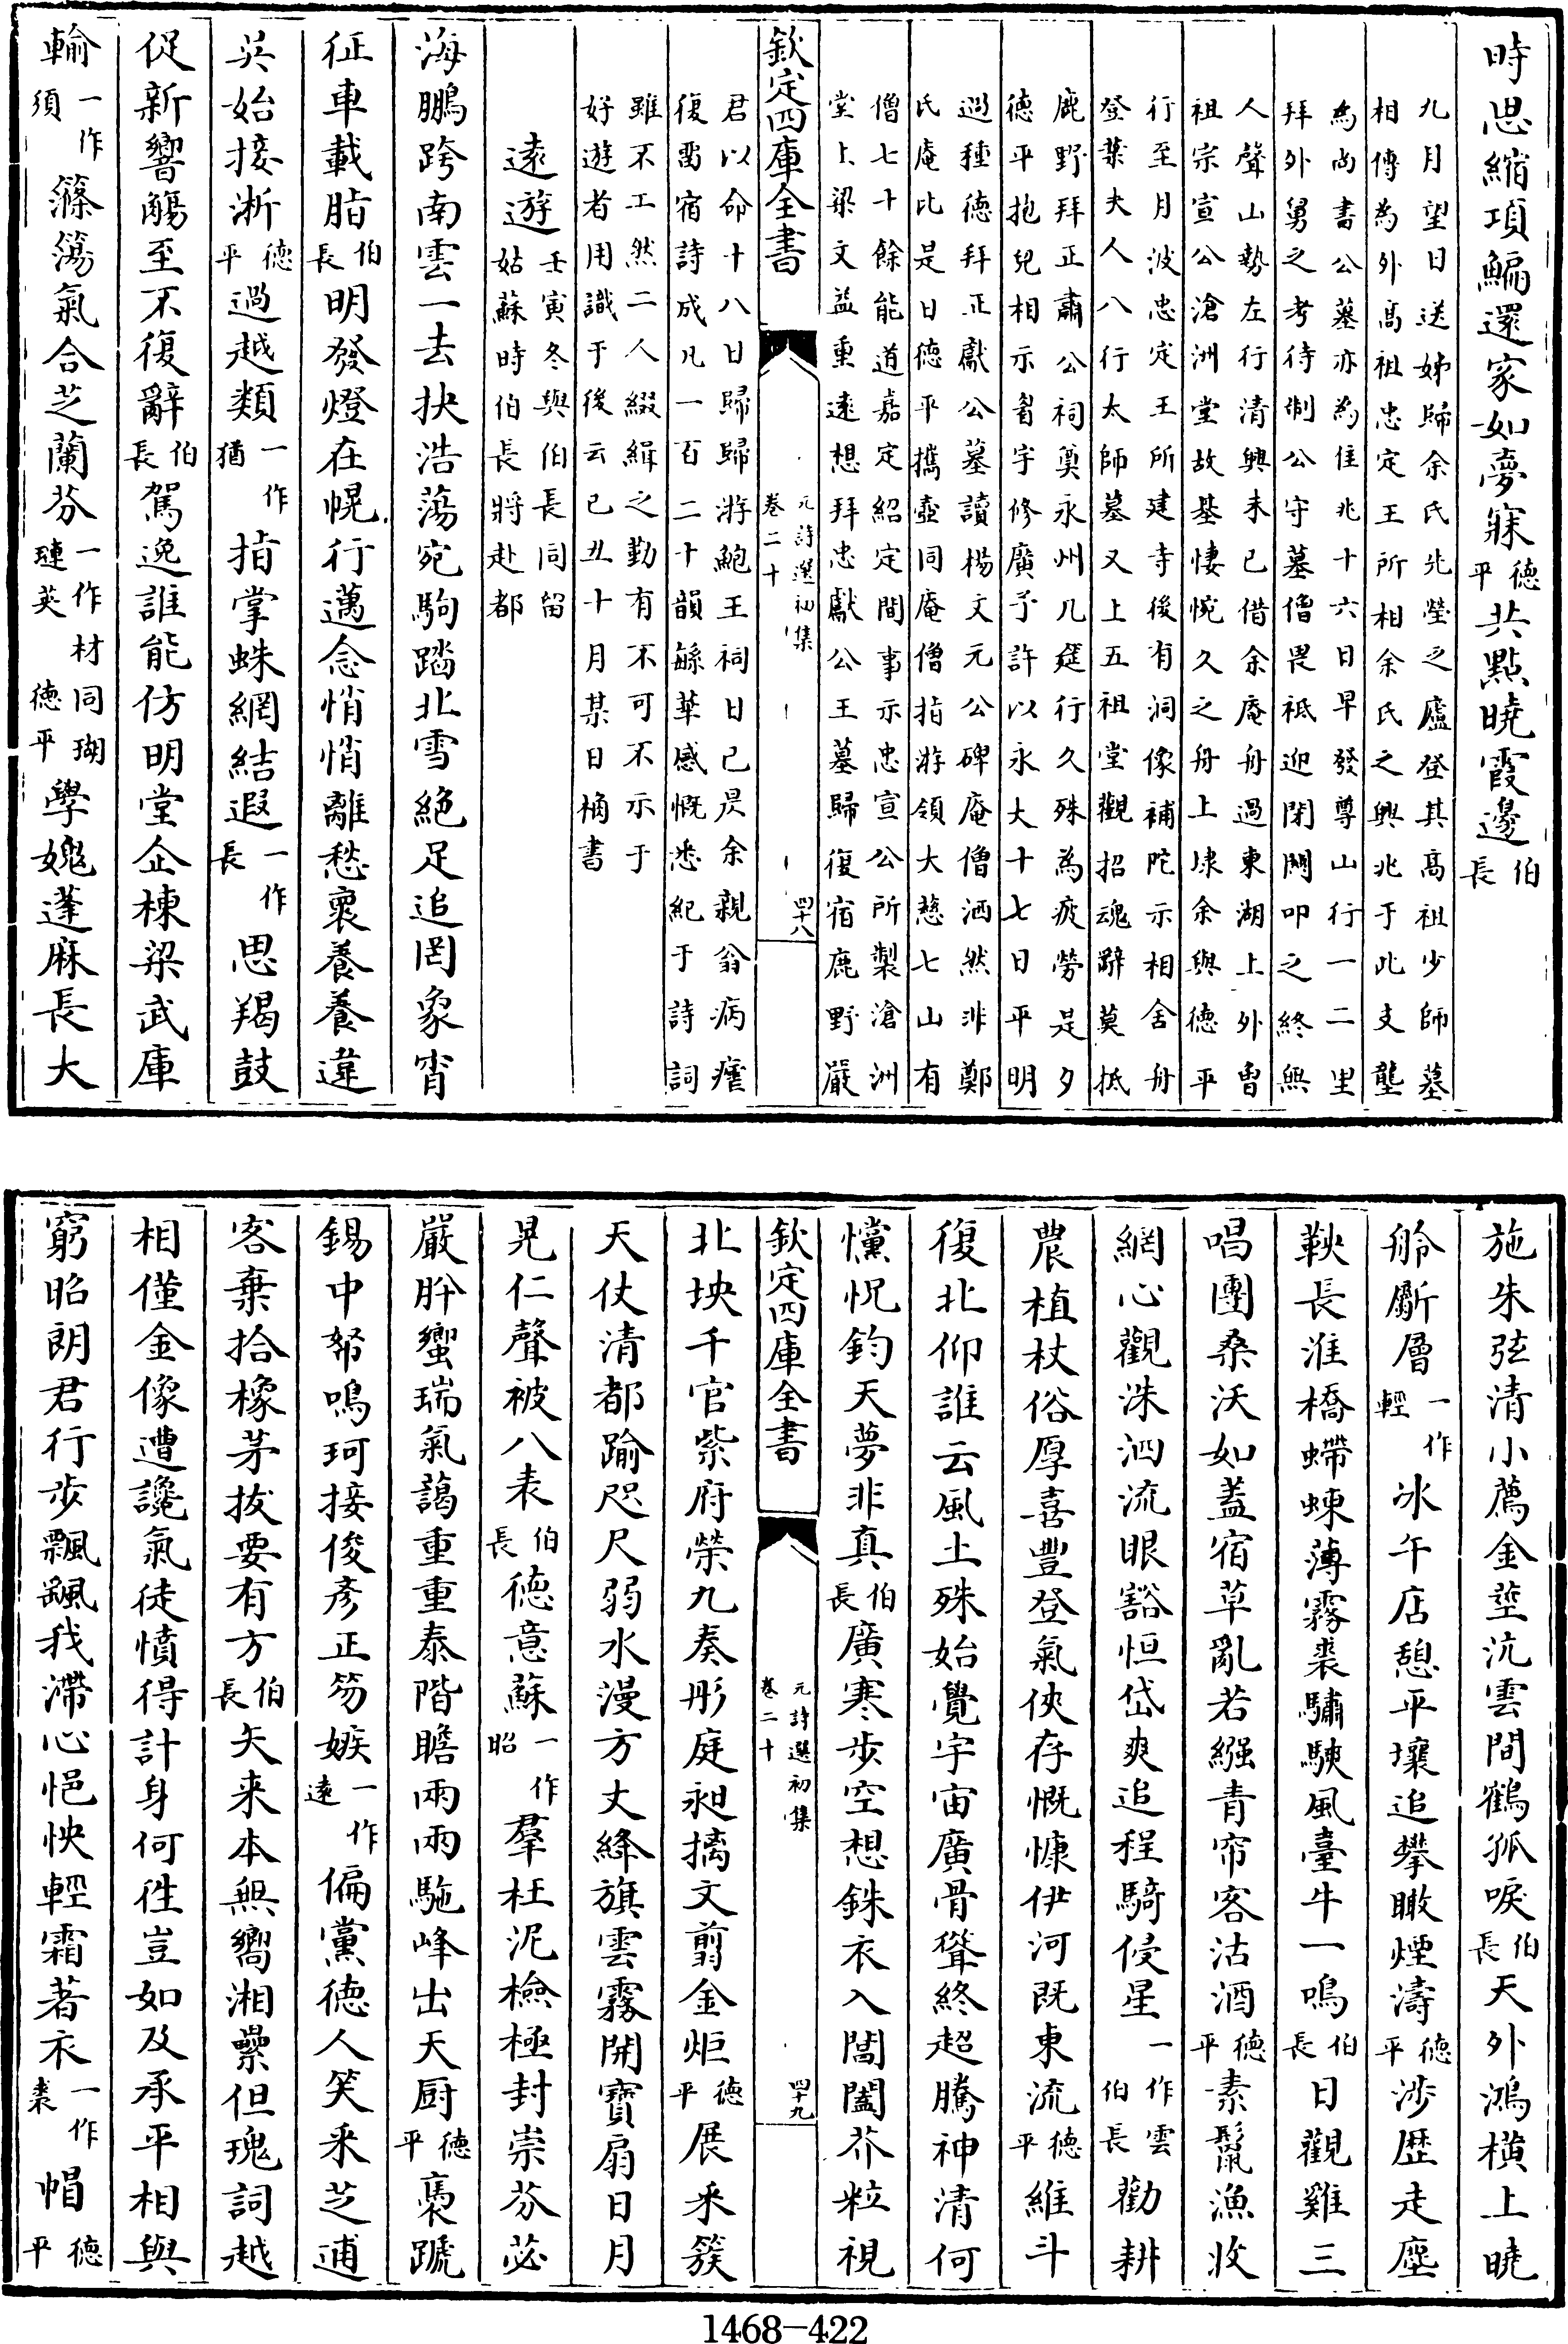 時思縮項鳊還家如夢寐德平共點曉霞邊伯長
九月望日送姊歸余氏先塋之廬登其髙祖少師墓
相傳為外髙祖忠定王所相余氏之興兆于此支壟
為尚書公墓亦為佳兆十六日早發尊山行一二里
拜外舅之考待制公守墓僧畏袛迎閉闗叩之終無
人聲山勢左行清興未已借余庵舟過東湖上外曽
祖宗宣公滄洲堂故基悽惋久之舟上埭余與德平
行至月波忠定王所建寺後有洞像補陀示相舍舟
登葉夫人八行太師墓又上五祖堂觀招魂辭莫抵
鹿野拜正肅公祠奠永州几筵行久殊為疲勞是夕
德平抱兒相示畧字修廣予許以永大十七日平明
過種德拜正獻公墓讀楊文元公碑庵僧洒然非鄭
氏庵比是日德平攜壺同庵僧指游領大慈七山有
僧七十餘能道嘉定紹定間事示忠宣公所製滄洲
堂上梁文益重遠想拜忠獻公王墓歸復宿鹿野嚴
欽定四庫全書
元詩選初集
卷二十
四十八
君以命十八日歸歸游鮑王祠日己昃余親翁病瘧
復畱宿詩成凡一百二十韻繇華感慨悉紀于詩詞
雖不工然二人綴緝之勤有不可不示于
好遊者用識于後云已丑十月某日桷書
遠遊壬寅冬與伯長同留
姑蘇時伯長將赴都
海鵬跨南雲一去抉浩蕩宛駒踏北雪絶足追罔象宵
征車載脂伯長明發燈在幌行邁念悄悄離愁褱養養違
吳始接淅德平過越類一作猶指掌蛛網結遐一作長思羯鼓
促新響觴至不復辭伯長駕逸誰能仿明堂企棟梁武庫
輸一作須篠簜氣合芝蘭芬一作材同瑚璉英德平學媿蓬麻長大
施朱弦清小薦金莖沆雲間鶴孤唳伯長天外鴻横上曉
舲斸層一作輕冰午店憩平壤追攀瞰煙濤德平涉歴走塵
鞅長淮橋螮蝀薄霧裘驌駛風臺牛一鳴伯長日觀雞三
唱團桑沃如蓋宿草亂若繦青帘客沽酒德平素鬣漁收
網心觀洙泗流眼豁恒岱爽追程騎侵星一作雲伯長勸耕
農植杖俗厚喜豐登氣俠存慨慷伊河既東流德平維斗
復北仰誰云風土殊始覺宇宙廣骨聳終超騰神清何
戃怳鈞天夢非真伯長廣寒步空想銖衣入闔闔芥粒視
欽定四庫全書
元詩選初集
卷二十
四十九
北坱千官紫府榮九奏彤庭昶摛文剪金炬德平展采簇
天仗清都踰咫尺弱水漫方丈絳旗雲霧開寶扇日月
晃仁聲被八表伯長德意蘇一作昭羣枉泥檢極封崇芬苾
嚴肸蠁瑞氣藹重重泰階瞻兩兩駞峰出天厨德平褭蹏
錫中帑鳴珂接俊彦正笏嫉一作遠偏黨德人笑采芝逋
客棄拾橡茅拔要有方伯長矢来本無嚮湘纍但瑰詞越
相僅金像遭讒氣徒憤得計身何徃豈如及承平相與
窮昭朗君行步飄颻我滯心悒怏輕霜著衣一作裘帽德平
1468—422